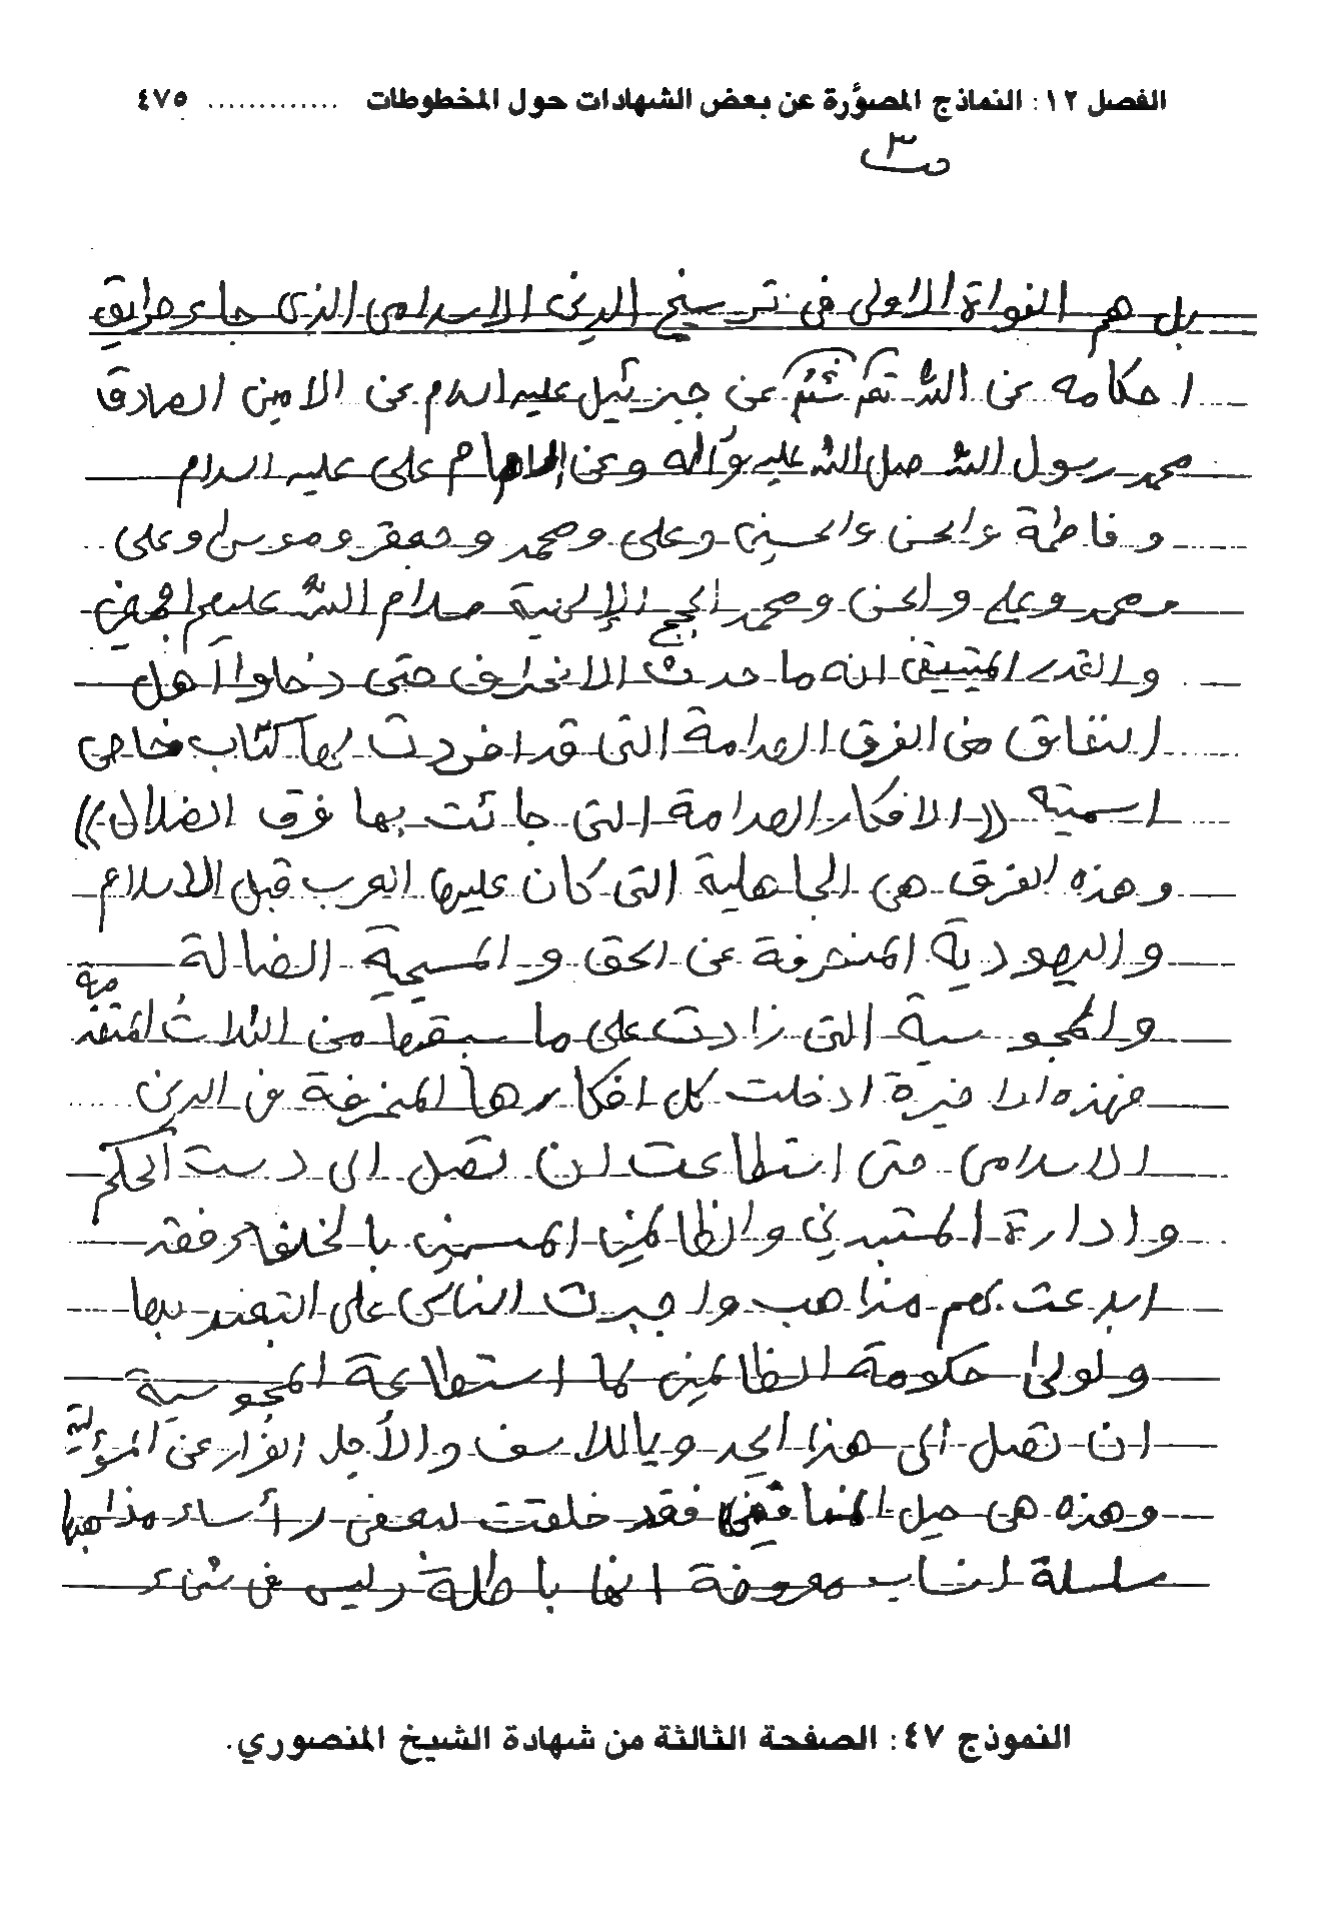 الفصل ١٢: النماذج المصوّرة عن بعض الشهادات حول المخطوطات ............. ٤٧٥
ص٣
بل هم النواة الاولى في ترسيخ الدين الاسلامي الذي جاء طريق
احكامه عن الله ثم عن جبرئيل عليه السلام عن الامين الصادق
محمد رسول الله صلى الله عليه وآله وعن الامام علي عليه السلام
وفاطمة والحسن والحسين وعلي ومحمد وجعفر وموسى وعلي
ومحمد وعلي والحسن ومحمد الحجج الإلهية سلام الله عليهم اجمعين
والقدر المتيقن انه ما حدث الانحراف حتى دخلوا أهل
النفاق من الفرق الهدامة التي قد افردت لها كتاب خاص
اسميته ((الافكار الهدامة التي جائت بها فرق الضلال))
وهذه الفرق هي الجاهلية التي كان عليها العرب قبل الاسلام
واليهودية المنحرفة عن الحق والمسيحية الضالة
والمجوسية التي زادت على ما سبقها من الثلاث المتقدمة
فهذه الاخيرة ادخلت كل افكارها المنحرفة في الدين
الاسلامي حتى استطاعت ان تصل الى دست الحكم
وادارة المستبدين والظالمين المسمين بالخلفاء فقد
ابدعت لهم مذاهب واجبرت الناس على التعبد بها
ولولا حكومة الظالمين لما استطاعة المجوسية
ان تصل الى هذا الحد وياللاسف والأجل الفرار عن المسؤلية
وهذه هي حيل المنافقين فقد خلقت لبعض رأساء مذاهبها
سلسلة انساب معروفة انها باطلة وليس في شيء
النموذج ٤٧: الصفحة الثالثة من شهادة الشيخ المنصوري.